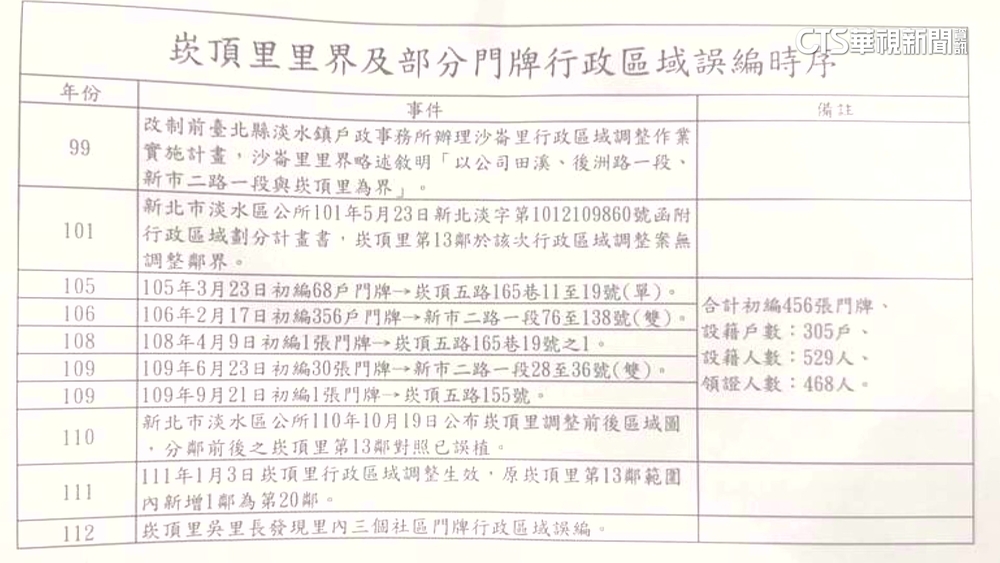 CTS華視新聞資訊
崁頂里里界及部分門牌行政區域誤編時序
年份 事件 備註
99
改制前臺北縣淡水鎮戶政事務所辦理沙崙里行政區域調整作業
實施計畫，沙崙里里界略述敘明「以公司田溪、後洲路一段、
新市二路一段與崁頂里為界」。
101
新北市淡水區公所101年5月23日新北淡字第1012109860號函附
行政區域劃分計畫書，崁頂里第13鄰於該次行政區域調整案無
調整鄰界。
105 105年3月23日初編68戶門牌→崁頂五路165巷11至19號(單)。
106 106年2月17日初編356戶門牌→新市二路一段76至138號(雙)。
108 108年4月9日初編1張門牌→崁頂五路165巷19號之1。
109 109年6月23日初編30張門牌→新市二路一段28至36號(雙)。
109 109年9月21日初編1張門牌→崁頂五路155號。
合計初編456張門牌、
設籍戶數：305戶、
設籍人數：529人、
領證人數：468人。
110
新北市淡水區公所110年10月19日公布崁頂里調整前後區域圖
，分鄰前後之崁頂里第13鄰對照已誤植。
111
111年1月3日崁頂里行政區域調整生效，原崁頂里第13鄰範圍
內新增1鄰為第20鄰。
112 崁頂里吳里長發現里內三個社區門牌行政區域誤編。